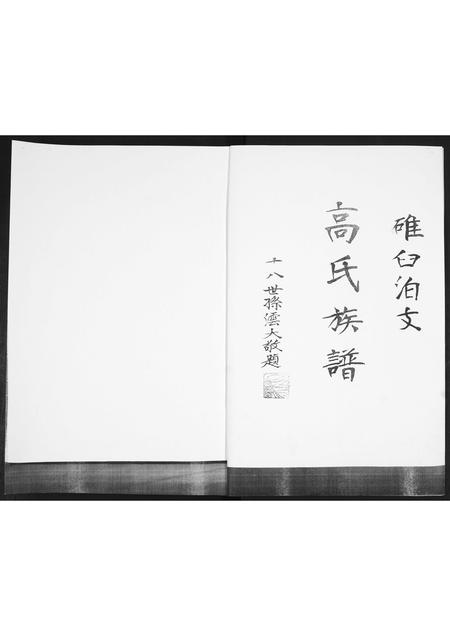 碓臼泊支
高氏族譜
十八世孫澐大敬題